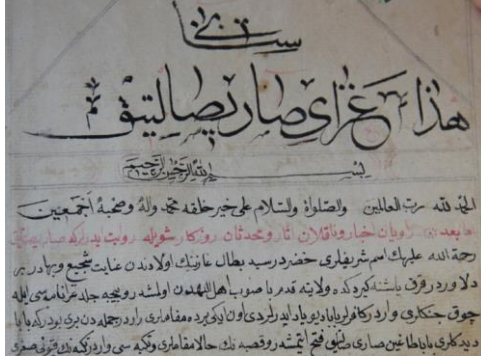 هذا غزاى صارى صالتق
بسم الله الرحمن الرحيم
الحمد لله رب العالمين والصلواة والسلام على خير خلقه محمد وآله وصحبه اجمعين
اما بعد راويان اخبار وناقلان آثار ومحدثان روزكار شويله روايت ايدرلركه صارى صالتق
رحمة الله عليهك اسم شريفلرى خضردر سيد بطال غازينك اولادندن غايت شجيع وبهادر بر
دلاور در قرق ياشنه كيردكده ولايته قدم باصوب اهل الله دن اولمشه ونيجه جلد غزانامه سى ايله
چوق جنكلرى واردر كافرلر بابا ديو ياد ايدرلردى اون ايكى يرده مقاملرى واردر جمله دن برى بودركه بابا
ديدكلرى بابا طاغين صارى فتح ايتمشه وقصبه نك حالا مقاملرى وتكيه سى واردر